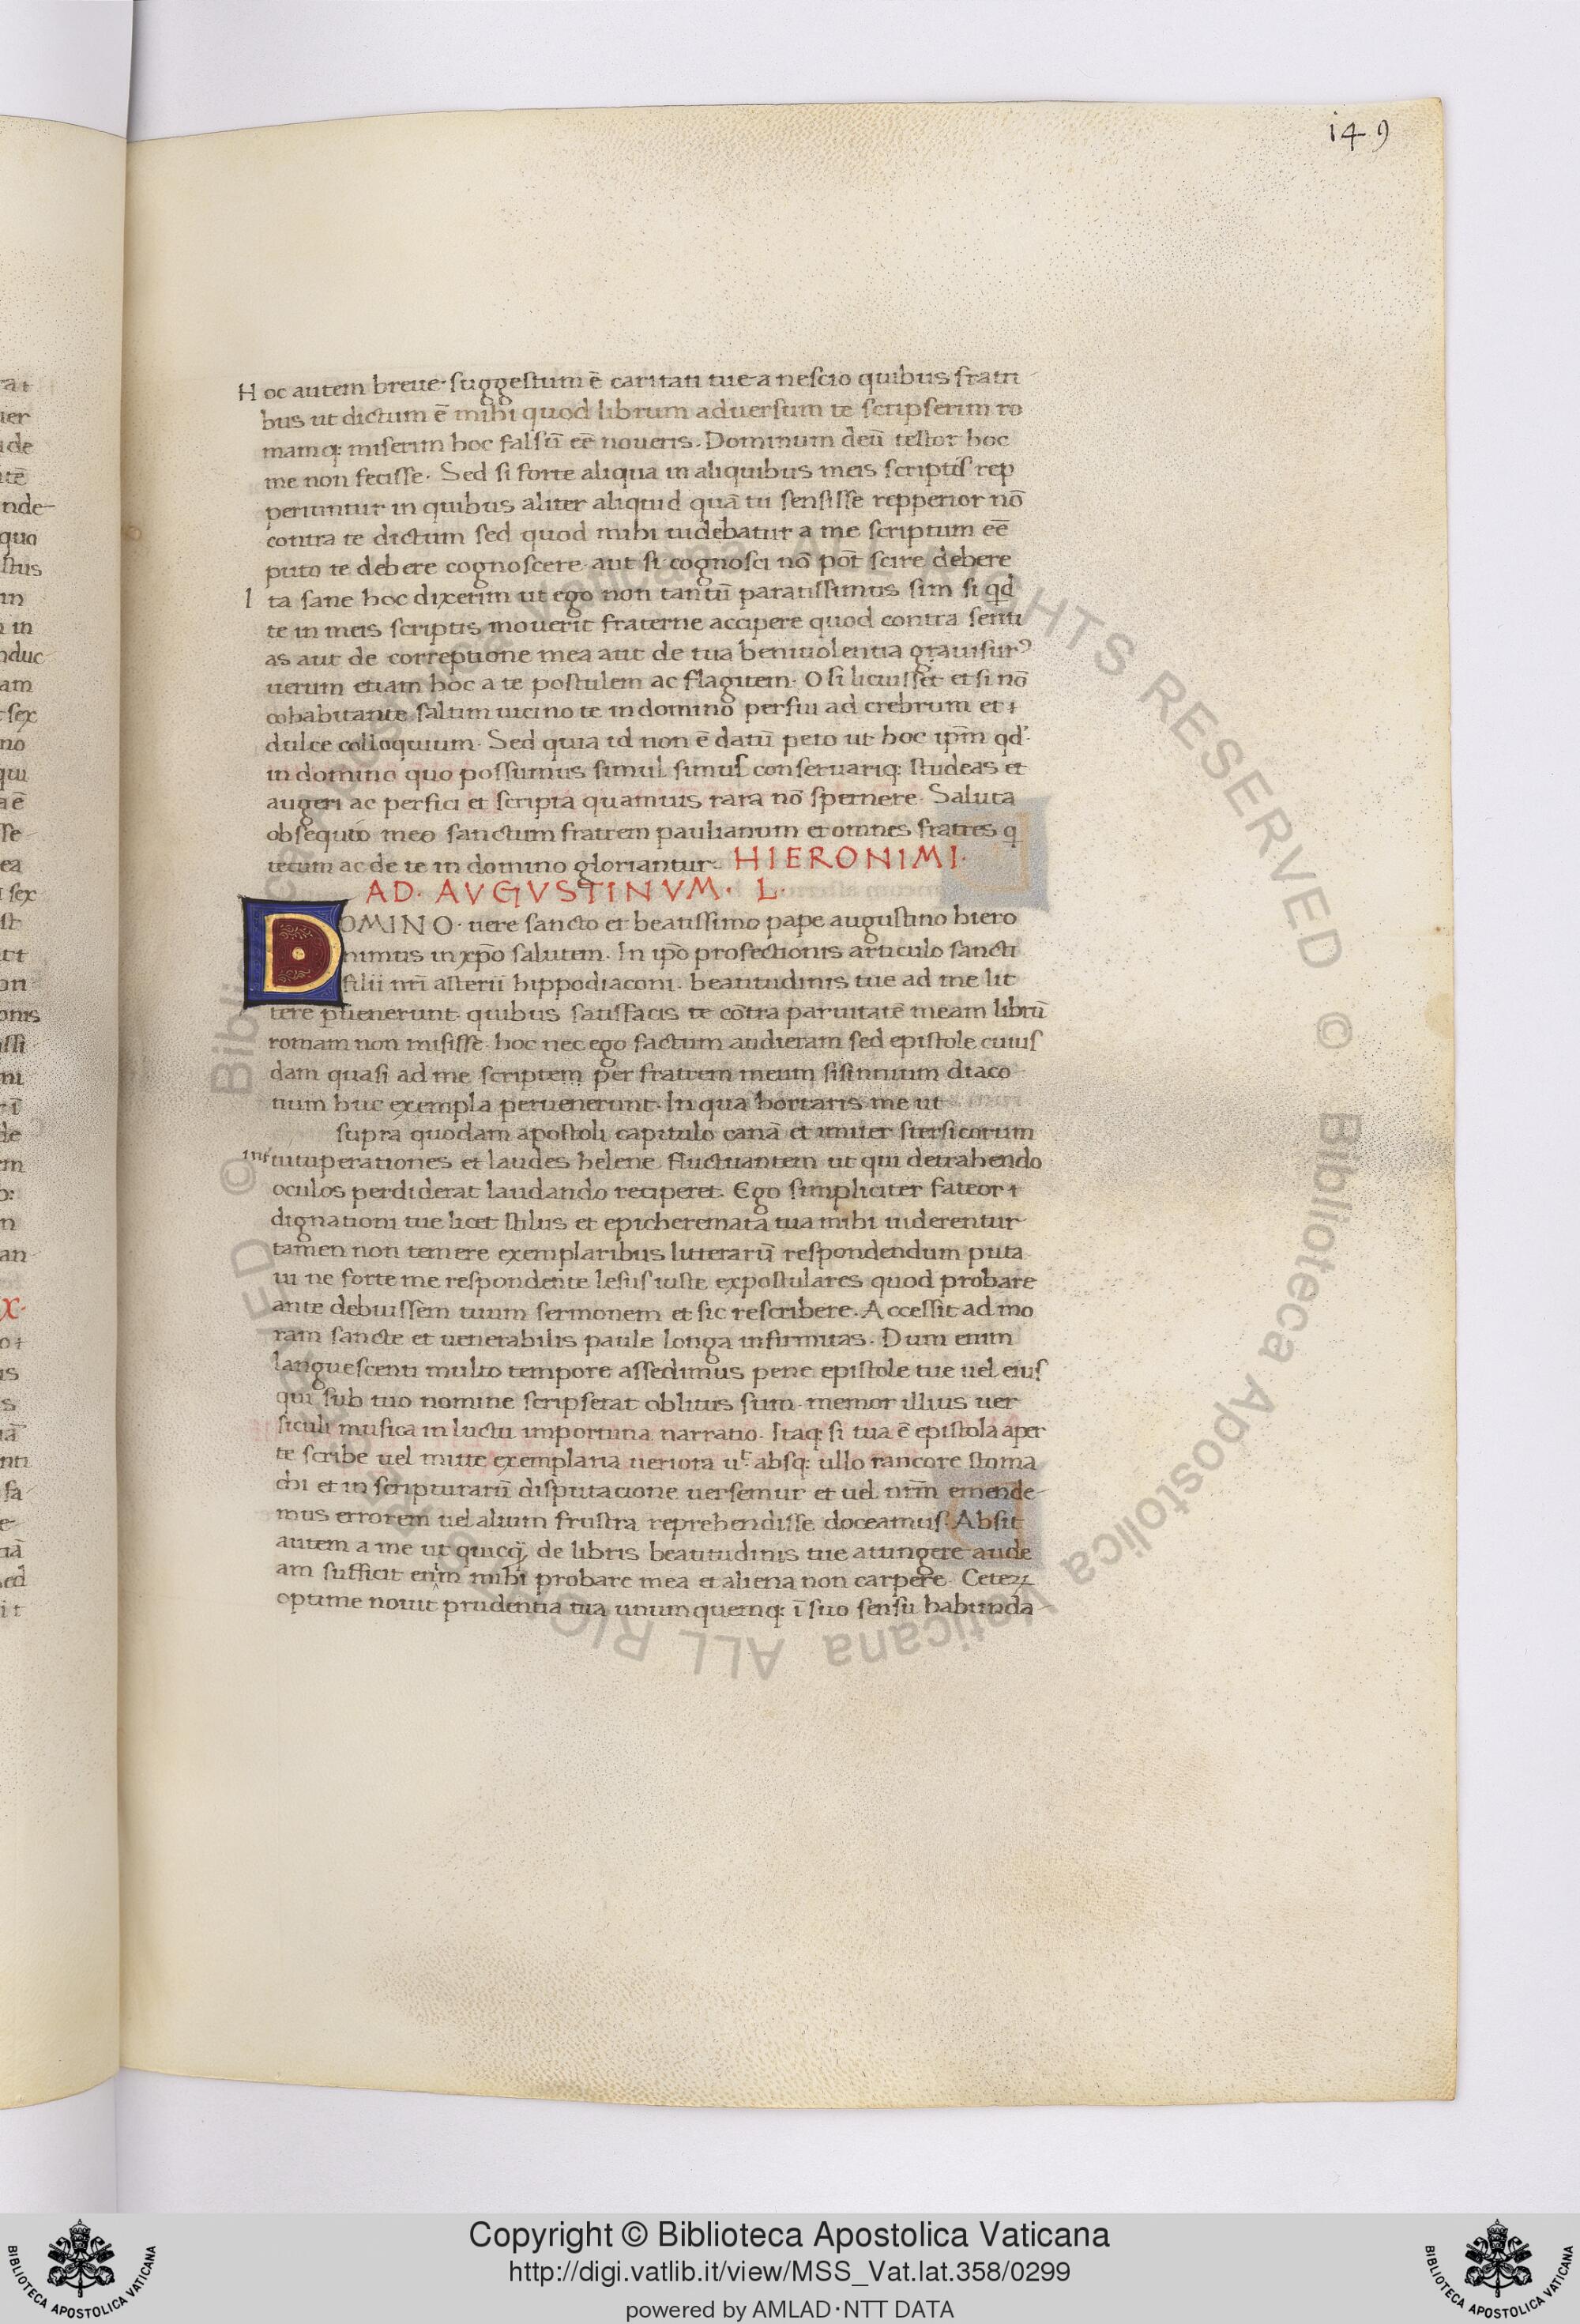 i49
Hoc autem breue suggestum ē caritati tue a nescio quibus fratri
bus ut dictum ē mihi quod librum aduersum te scripserim ro
mamq; miserim hoc falsū eē noueris. Dominum deū testor hoc
me non fecisse. Sed si forte aliqua in aliquibus meis scriptis rep
periuntur in quibus aliter aliquid quā tu sensisse repperior nō
contra te dictum sed quod mihi uidebatur a me scriptum eē
puto te debere cognoscere aut si cognosci nō pōt scire debere
Ita sane hoc dixerim ut ego non tantū paratissimus sim si qd
te in meis scriptis mouerit fraterne accipere quod contra senti
as aut de correptione mea aut de tua beniuolentia grauisurꝰ
uerum etiam hoc a te postulem ac flagitem. O si licuisset et si nō
cohabitante saltim uicino te in domino perfrui ad crebrum et
dulce colloquium. Sed quia id non ē datū peto ut hoc ipm̄ qd
in domino quo possumus simul simus conseruariq; studeas et
augeri ac perfici et scripta quamuis rara nō spernere. Saluta
obsequio meo sanctum fratrem paulianum et omnes fratres q
tecum ac de te in domino gloriantur. HIERONIMI.
AD. AVGVSTINVM. L.
DOMINO. uere sancto et beatissimo pape augustino hiero
nimus in xp̄o salutem. In ip̄o profectionis articulo sancti
filii nr̄i asterii hippodiaconi. beatitudinis tue ad me lit
tere puenerunt. quibus satisfacis te cōtra paruitatē meam librū
romam non misisse. hoc nec ego factum audieram sed epistole cuius
dam quasi ad me scriptem per fratrem meum sisinnium diaco
num huc exempla peruenerunt. In qua hortaris me ut
supra quodam apostoli capitulo canā et imiter stersicorum
inť uituperationes et laudes helene fluctuantem ut qui detrahendo
oculos perdiderat laudando reciperet. Ego simpliciter fateor
dignationi tue licet stilus et epicheremata tua mihi uiderentur
tamen non temere exemplaribus litterarū respondendum puta
ui ne forte me respondente lesus iuste expostulares quod probare
ante debuissem tuum sermonem et sic rescribere. Accessit ad mo
ram sancte et uenerabilis paule longa infirmitas. Dum enim
languescenti multo tempore assedimus pene epistole tue uel eius
qui sub tuo nomine scripserat oblitus sum. memor illius uer
siculi musica in luctu importuna narratio. Itaq; si tua ē epistola aper
te scribe uel mitte exemplaria ueriora ut absq; ullo rancore stoma
chi et in scripturarū disputacione uersemur et uel nr̄m emende
mus errorem uel alium frustra reprehendisse doceamus. Absit
autem a me ut quicq̄ de libris beatitudinis tue attingere aude
am sufficit enim mihi probare mea et aliena non carpere. Ceteꝝ
optime nouit prudentia tua unumquemq; ī suo sensu habunda
Copyright © Biblioteca Apostolica Vaticana
http://digi.vatlib.it/view/MSS_Vat.lat.358/0299
powered by AMLAD·NTT DATA